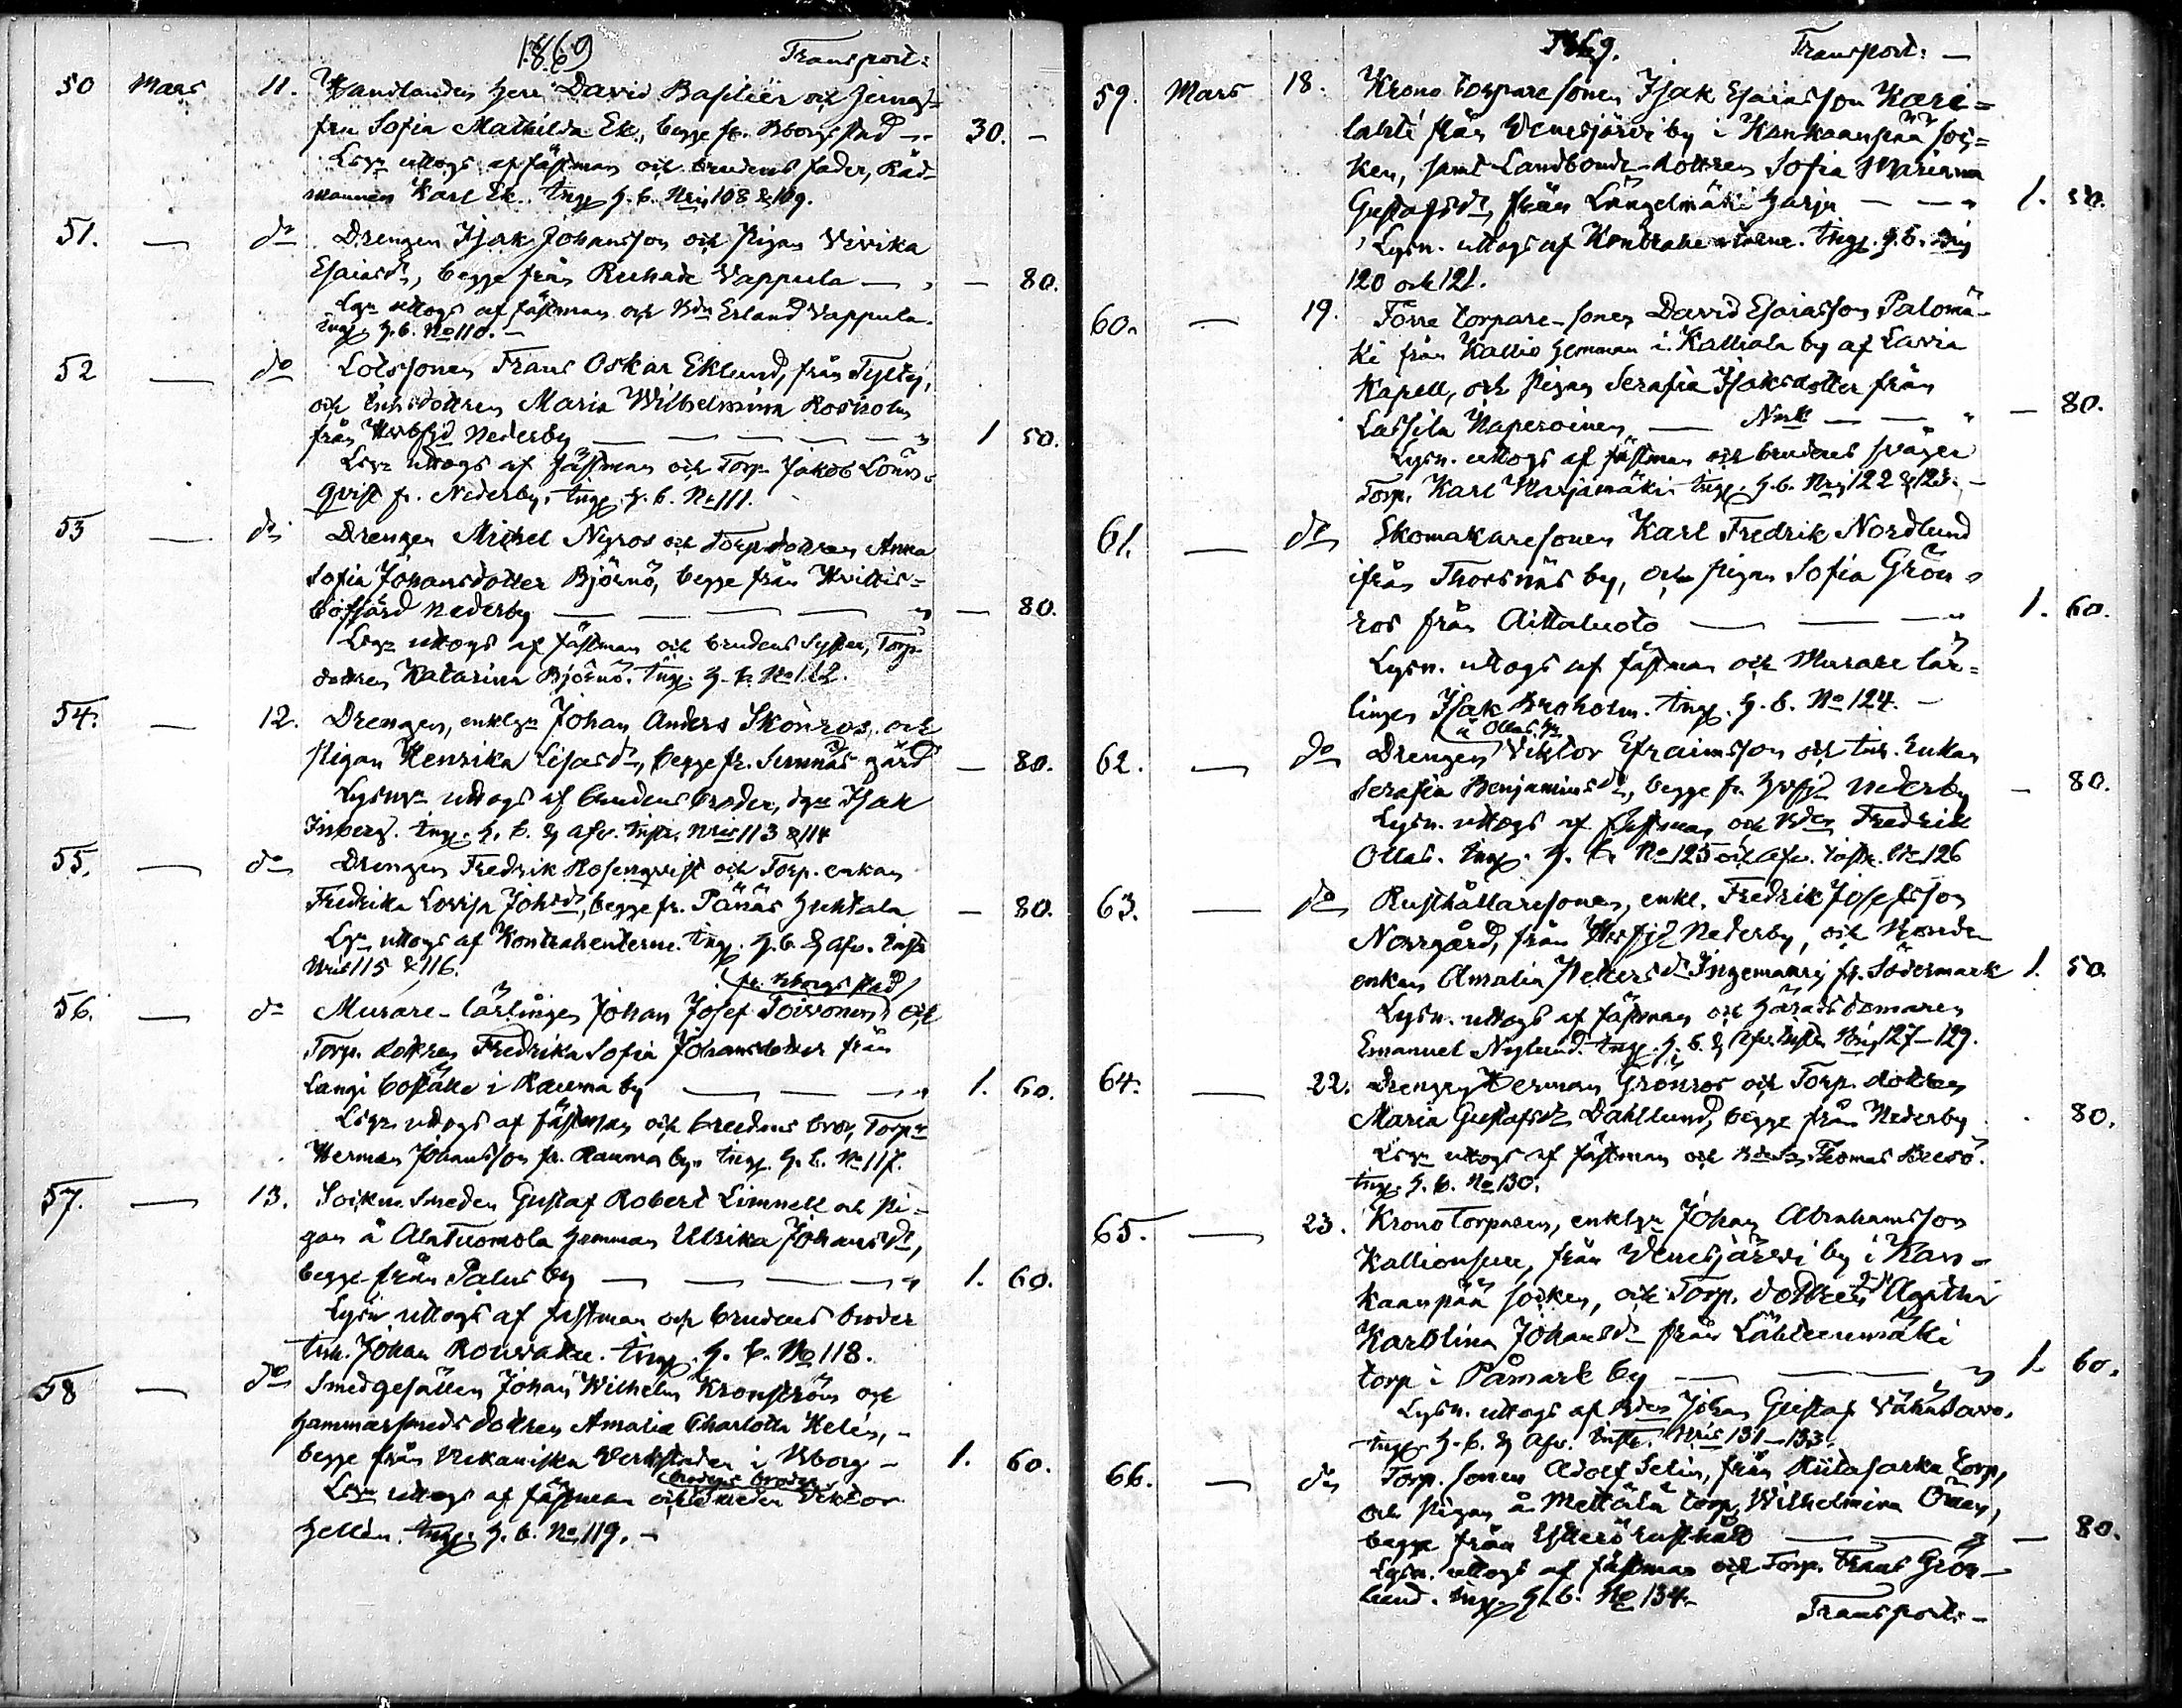 1869 Transport:
50 Mars 11. Handlanden Herr David Basilier och Jemng-
fru Sofia Mathilda Ek, begge fr. Bborgs stad — 30. —
Lsgn uttogs af fästman och brudens fader, Råd-
mannen Karl Ek. Ingp. h. b. Nris 108 & 109.
51. — do Drengen Isak Johansson och Pigan Vivika
Esaiasdr, begge från Ruhade Vappula — — 80.
Lgn uttogs af fästman och Bdn Erland Vappula.
Ingp. h. b. No 110. —
52 — do Lotssonen Frans Oskar Eklund, från
och Enkedottren Maria Wilhelmina Rosholm
från Nederby — — — — — 1 50.
Lsgn uttogs af fästman och Torp. Jakob Lönn-
qvist fr. Nederby. Ingp. h. b. No 111.
53 — do Drengen Mickel Nyros och Torp. dottren Anna
Sofia Johansdotter Björnö, begge från Hvittis-
bofjärd Nederby — — — — 80.
Lsgn uttogs af fästman och brudens syster, Torp.
dottren Katarina Björnö. Ingp. h. b. No 112.
54. — 12. Drengen, enklgn Johan Anders Skönros, och
Pigan Henrika Lisasdr, begge fr. Sunnäs gård — 80.
Lysngn uttogs af brudens broder, dgn Isak
Inberg. Ingp. h. b. & afv. Inst. Nris 113 & 114
55. — do Drengen Fredrik Rosenqvist och Torp. enkan
Fredrika Lovisa Johsdr, begge fr. Pänäs Huhtala — 80.
Lgn uttogs af Kontrahenterne. Ingp. h. b. & afv. Inst.
Nris 115 & 116.
fr. Bborgs stad
56. — do Murare-lärlingen Johan Josef Toivonen och
Torp. dottren Fredrika Sofia Johansdotter från
Langi boställe i Rauma by — — — 1. 60.
Lsgn uttogs af fästman och brudens bror, Torpn
Herman Johansson fr. Rauma by. Ingp. h. b. No 117.
57. — 13. Sockne Smeden Gustaf Robert Limnell och Pi-
gan å AlaTuomola Hemman Ulrika Johansdr,
begge från Palus by — — — — 1. 60.
Lysn. uttogs af fästman och brudens broder
Inh. Johan Rouvake. Ingp. h. b. No 118.
58 — do Smedgesällen Johan Wilhelm Kronström och
Hammarsmeds dottren Amalia Charlotta Helén, —
begge från Mekaniska Verkstaden i Bborg — 1. 60.
brudens broder
Lsgn uttogs af fästman och Smeden Viktor
Hellén. Ingp. h. b. No 119. —
1869. Transport: —
59. Mars 18. Krono torparesonen Isak Esaiasson Kari-
lahti från Venesjärvi by i Kankaanpää soc-
ken, samt Landbonde-dottren Sofia Marianna
Gustafsdr, från Längelmäki Harju — — 1. 50.
Lysn. uttogs af Kontrahenterne. Ingp. h. b. Nris
120 och 121.
60. — 19. Förre torpare-sonen David Esaiasson Palomä-
ki från Kallio Hemman i Kalliala by af Lavia
Kapell, och Pigan Serafia Isaksdotter från
Lassila Naperoinen — — — 80.
Lysn. uttogs af fästman och brudens svåger
Torp. Karl Marjamäki. Ingp. h. b. Nris 122 & 123. —
61. — do Skomakaresonen Karl Fredrik Nordlund
ifrån Thorsnäs by, och Pigan Sofia Grön-
ros från Aittaluoto — — — 1. 60.
Lysn. uttogs af fästman och Murare lär-
lingen Isak Broholm. Ingp. h. b. No 124. —
å Ollas
62. — do Drengen Viktor Efraimsson och Inh. Enkan
Serafia Benjaminsdr, begge fr. Nederby — 80.
Lysn. uttogs af fästman och Bden Fredrik
Ollas. Ingp. h. b. No 125 och afv. Inst. No 126
63. — do Rusthållaresonen, enkl. Fredrik Josefsson
Norrgård, från Nederby, och Bonde
enkan Amalia Pettersdr Ingemanrij fr. Södermark 1. 50
Lysn. uttogs af fästman och Häradsdomaren
Emanuel Nylund. Ingp. h. b. & afv. Inst. Nris 127–129.
64. — 22. Drengen Herman Grönros och Torp. dottren
Maria Gustafsdr Dahllund, begge från Nederby . 80.
Lsgn uttogs af fästman och Thomas
Ingp. h. b. No 130.
65. — 23. Krono Torparen, enklgn Johan Abrahamsson
Kallionsuu, från Venesjärvi by i Kan-
kaanpää socken, och Torp. dottren Agatha
Karolina Johansdr från Lähteenmäki
torp i Påmark by — — — 1. 60.
Lysn. uttogs af Bden Johan Gustaf Vähätavo.
Ingp. h. b. & afv. Inst. Nris 131–133.
66. — do Torp. sonen Adolf Selin, från Riitasarka torp,
och Pigan å Mettälä torp, Wilhelmina
begge från Ytterö rusthåll — — — 80.
Lysn. uttogs af fästman och Torp. Frans Grön-
lund. Ingp. h. b. No 134. —
Transport: —